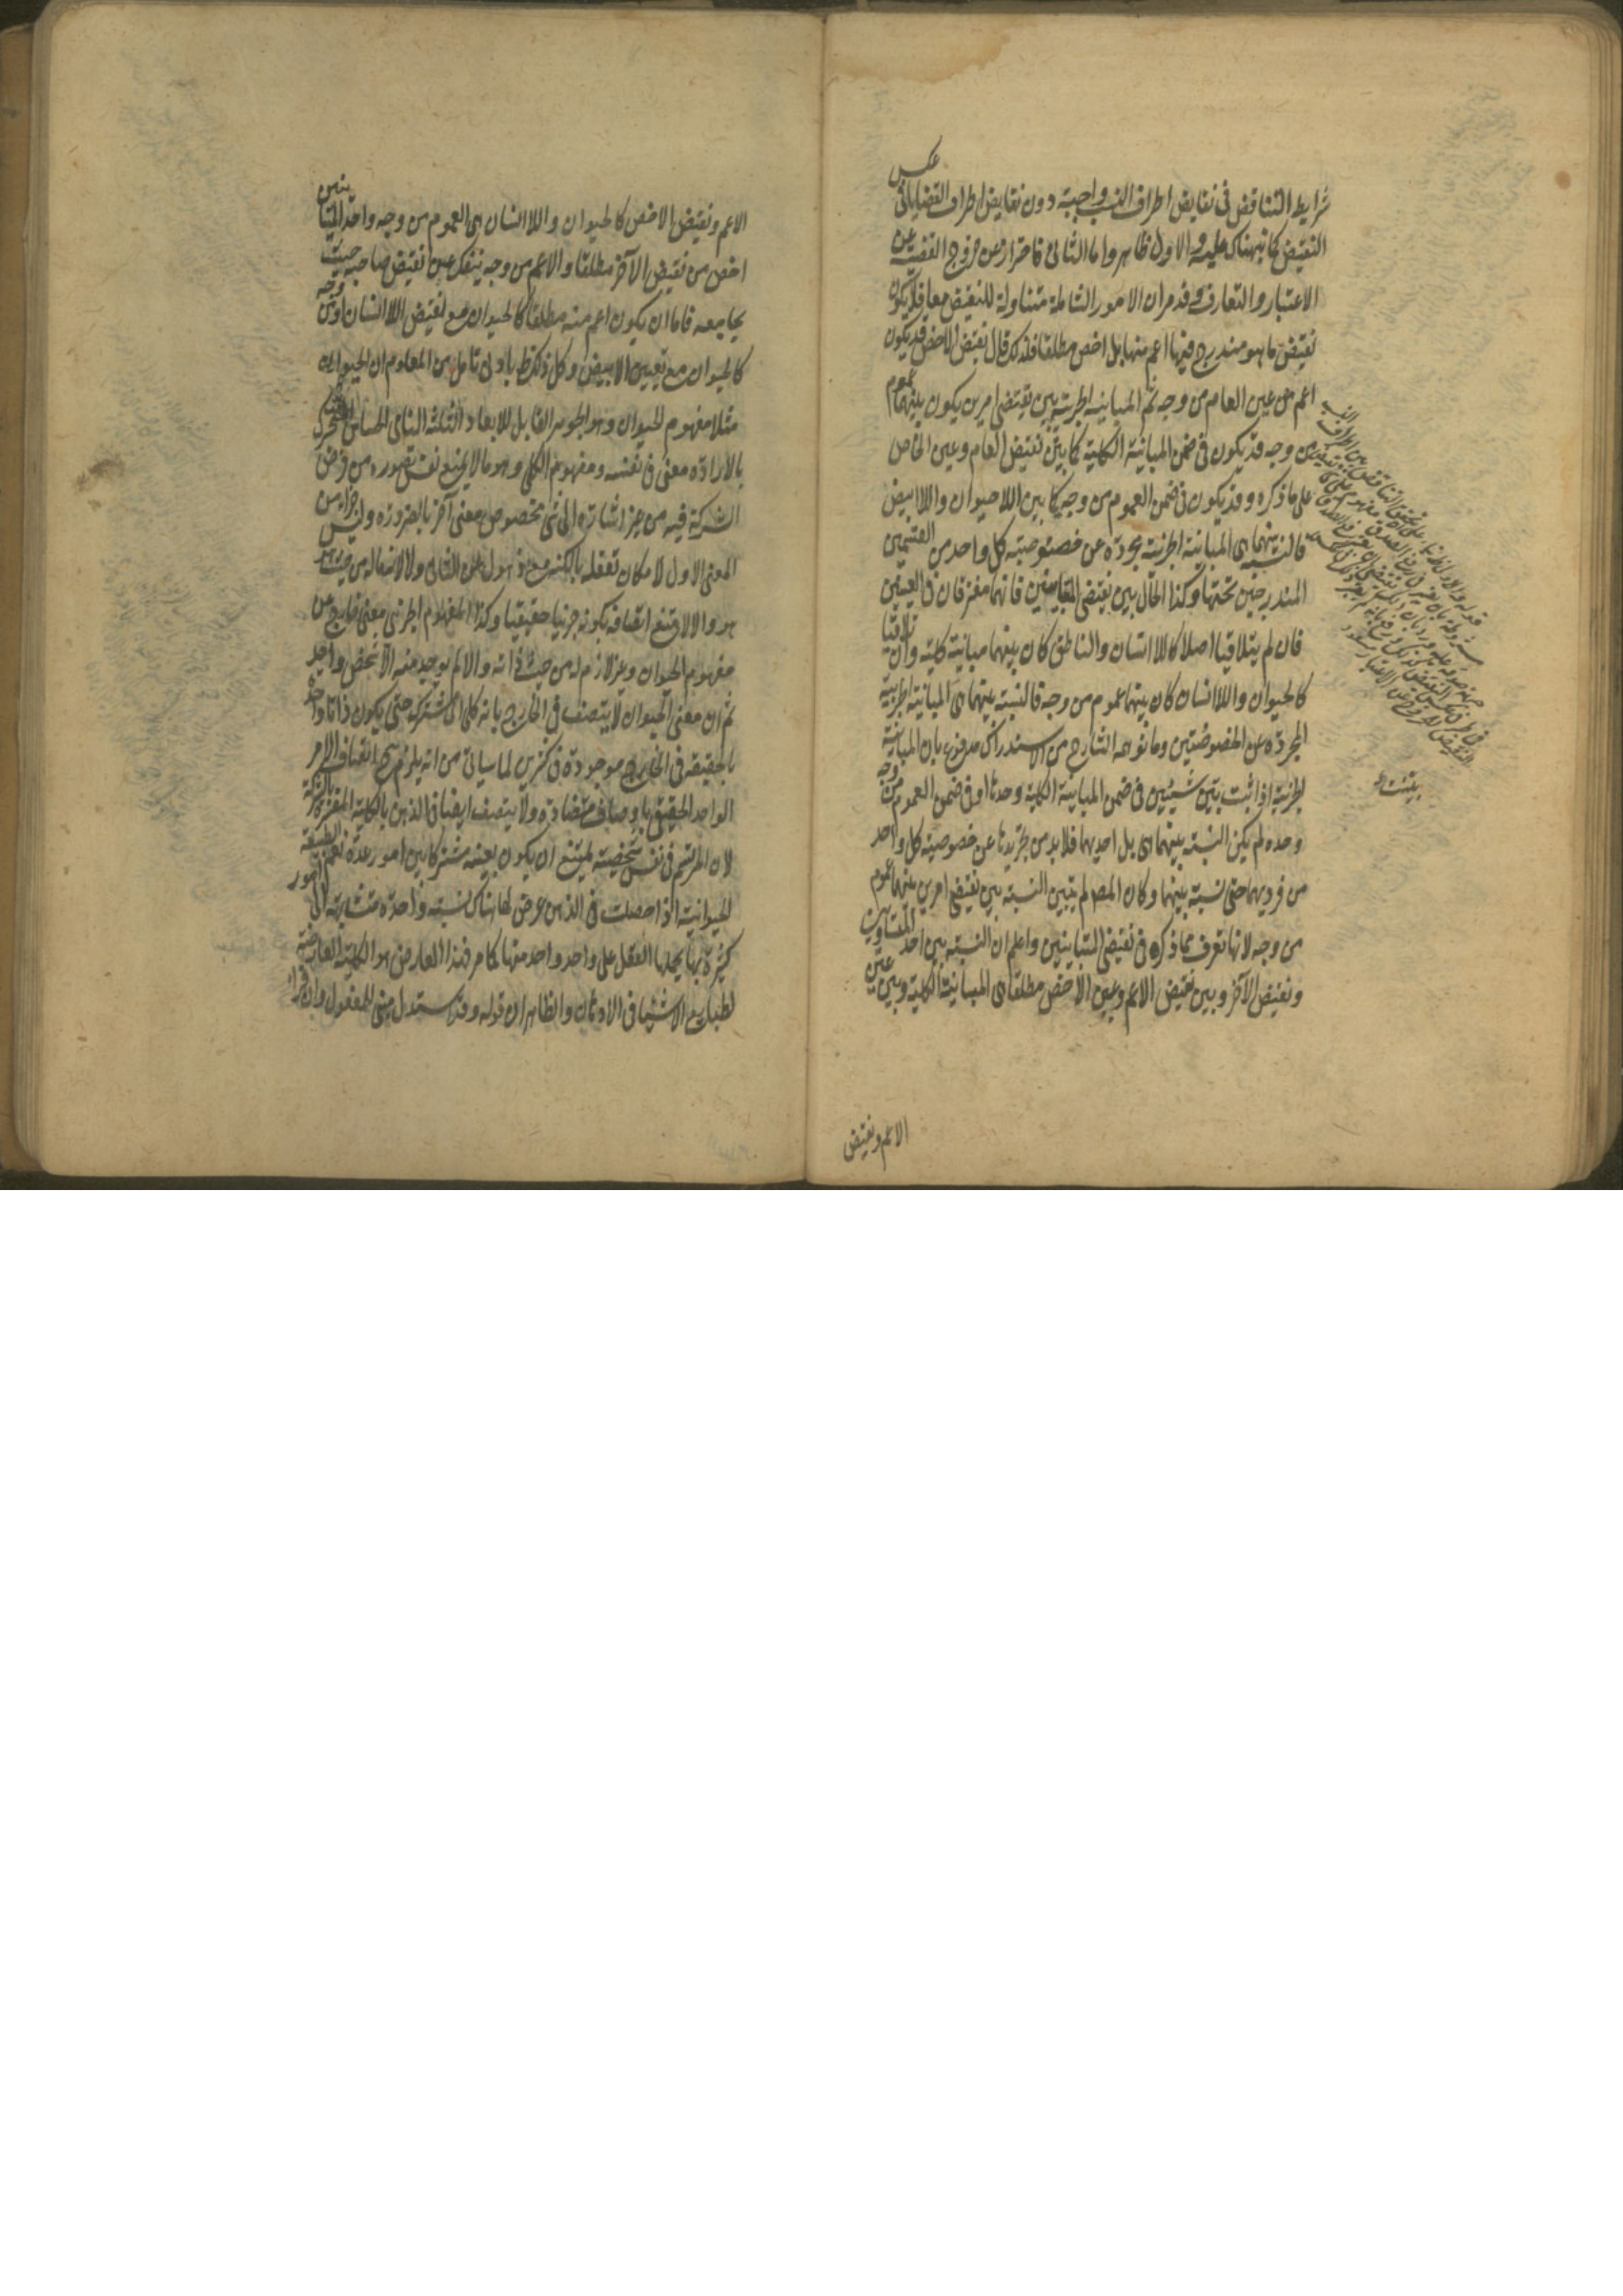 شرايط التناقض فى نقايض اطراف النسب واجبة دون نقايض اطراف القضايا فى عكس
النقيض كما نبهناك عليه و الاول ظاهر واما الثانى فاحتراز عن خروج القضية عن
الاعتبار والتعارف وقد مر ان الامور الشاملة متناولة للنقيض معا فلا يكون
نقيض ما هو مندرج فيها اعم منها بل اخص مطلقا فلذلك قال نقيض الاخص قد يكون
اعم من عين العام من وجه ثم المباينة الجزئية بين نقيضى امرين يكون بينهما عموم
من وجه قد يكون فى ضمن المباينة الكلية كما بين نقيض العام وعين الخاص
على ما ذكره وقد يكون فى ضمن العموم من وجه كما بين اللاحيوان واللاابيض
فالنسبة بينهما هى المباينة الجزئية مجردة عن خصوصية كل واحد من القسمين
المندرجين تحتها وكذا الحال بين نقيضى المتباينين فانهما مفترقان فى العينين
فان لم يتلاقيا اصلا كاللاانسان والناطق كان بينهما مباينة كلية وان تلاقيا
كالحيوان واللاانسان كان بينهما عموم من وجه فالنسبة بينهما هى المباينة الجزئية
المجردة عن الخصوصيتين وما توهمه الشارح من الاستدراك مدفوع بان المباينة
الجزئية اذا ثبت بين شيئين فى ضمن المباينة الكلية وحدها او فى ضمن العموم من وجه
وحده لم يكن النسبة بينهما هى بل احديهما فلا بد من تجريدها عن خصوصية كل واحد
من فرديهما حتى نسبة بينهما وكان المصـ لم يتبين النسبة بين نقيضى امرين بينهما عموم
من وجه لانها تعرف مما ذكره فى نقيضى المتباينين واعلم ان النسبة بين احد المتساويين
ونقيض الآخر وبين نقيض الاعم وعين الاخص مطلقا هى المباينة الكلية وبين عين
الاعم ونقيض
الاعم ونقيض الاخص كالحيوان واللاانسان هى العموم من وجه واحد المتباينين
اخص من نقيض الآخر مطلقا والاعم من وجه ينفك عن نقيض صاحبه حيث
يجامعه فاما ان يكون اعم منه مطلقا كالحيوان مع نقيض اللاانسان او من وجه
كالحيوان مع نقيض الابيض وكل ذلك ظ بادنى تامل من المعلوم ان الحيوان
مثلا مفهوم الحيوان وهو الجوهر القابل للابعاد الثلثة النامى الحساس المتحرك
بالارادة معنى فى نفسه ومفهوم الكلى وهو ما لا يمنع نفس تصوره من فرض
الشركة فيه من غير اشارة الى شى مخصوص معنى آخر بالضرورة وليس جزء من
المعنى الاول لامكان تعقله بالكنه مع ذهول عن الثانى ولا لازما له من حيث هو
هو والا لامتنع اتصافه بكونه جزئيا حقيقيا وكذا المفهوم الجزئى معنى خارج عن
مفهوم الحيوان وغير لازم له من حيث ذاته والا لم يوجد منه الا شخص واحد
ثم ان معنى الحيوان لا يتصف فى الخارج بانه كلى اى مشترك حتى يكون ذاتا واحدة
بالحقيقه فى الخارج موجودة فى كثيرين لما سياتى من انه يلزم ح اتصاف الامر
الواحد الحقيقى باوصاف متضادة ولا يتصف ايضا فى الذهن بالكلية المفسرة بالشركة
لان المرتسم فى نفس شخصية يمتنع ان يكون بعينه مشتركا بين امور عدة نعم الطبيعة
الحيوانية اذا حصلت فى الذهن عرض لها هناك نسبة واحدة متشابهة الى امور
كثيرة بها يحملها العقل على واحد واحد منها كما مر فهذا العارض هو الكلية العارضة
لطبايع الاشيا فى الاذهان والظاهر ان قوله وقد يستدل مبنى للمفعول وان قراءة